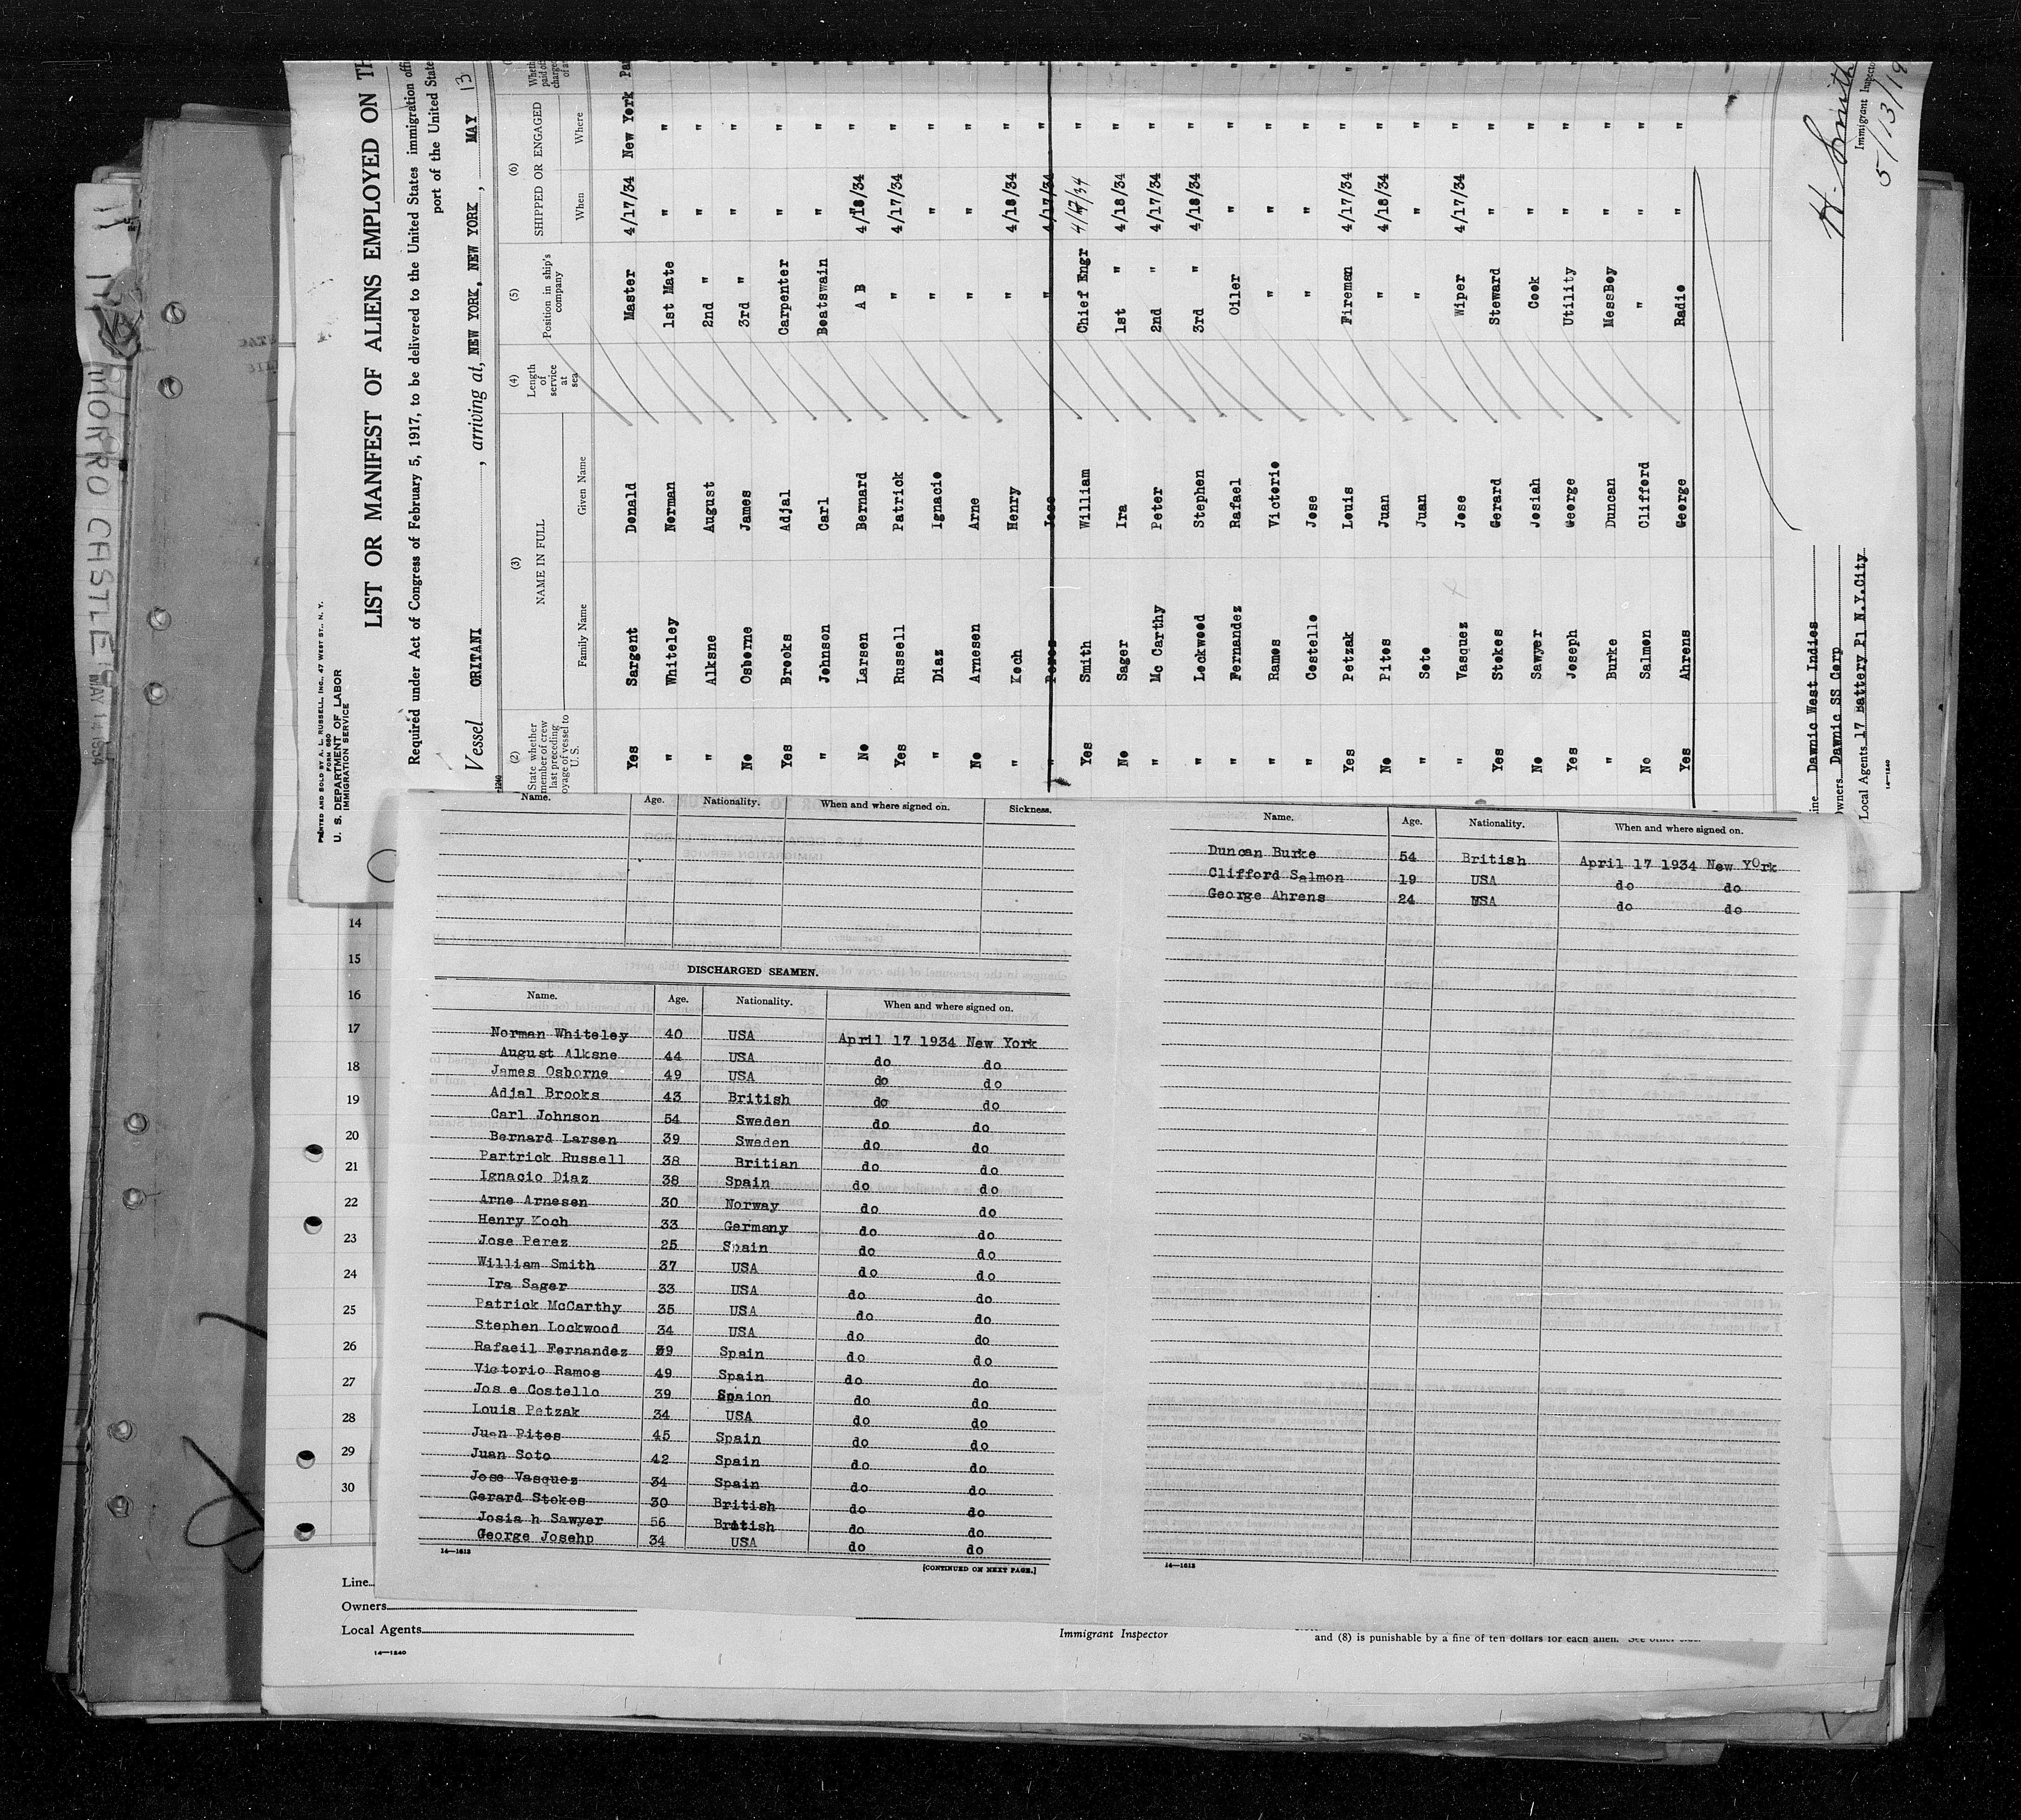 MORRO CASTLE
MAY 14 1934
PRINTED AND SOLD BY A. L. RUSSELL, INC., 47 WEST ST., N. Y.
FORM 680
U. S. DEPARTMENT OF LABOR
IMMIGRATION SERVICE
LIST OR MANIFEST OF ALIENS EMPLOYED ON TH
Required under Act of Congress of February 5, 1917, to be delivered to the United States immigration offi
port of the United State
Vessel ORITANI, arriving at, NEW YORK, NEW YORK, MAY 13
(2) (3) (4) (5) (6)
State whether member of crew last preceding voyage of vessel to U. S. NAME IN FULL Length of service at sea Position in ship's company SHIPPED OR ENGAGED
Family Name Given Name When Where
Yes Sargent Donald Master 4/17/34 New York Pa
" Whiteley Norman 1st Mate " "
" Alksne August 2nd " " "
No Osborne James 3rd " " "
Yes Brooks Adjal Carpenter " " "
" Johnson Carl Boatswain " " "
No Larsen Bernard A B 4/18/34 " "
Yes Russell Patrick " 4/17/34 " "
" Diaz Ignacio " " " "
No Arnesen Arne " " " "
" Koch Henry " 4/18/34 " "
" Perez Jose " 4/17/34 " "
Yes Smith William Chief Engr 4/17/34 " "
No Sager Ira 1st " 4/18/34 " "
" Mc Carthy Peter 2nd " 4/17/34 " "
" Lockwood Stephen 3rd " 4/18/34 " "
" Fernandez Rafael Oiler " " "
" Ramos Victorio " " " "
" Costello Jose " " " "
Yes Petzak Louis Fireman 4/17/34 " "
No Pites Juan " 4/18/34 " "
" Soto Juan " " " "
" Vasquez Jose Wiper 4/17/34 " "
Yes Stokes Gerard Steward " " "
No Sawyer Josiah Cook " " "
Yes Joseph George Utility " " "
" Burke Duncan MessBoy " " "
No Salmon Clifford " " " "
Yes Ahrens George Radio " " "
ine Dawnic West Indies
wners Dawnic SS Corp
Local Agents 17 Battery Pl N.Y.City
14—1240
H. Smith
Immigrant Inspecto
5/13/19
Name. Age. Nationality. When and where signed on. Sickness.
DISCHARGED SEAMEN.
Name. Age. Nationality. When and where signed on.
Norman Whiteley 40 USA April 17 1934 New York
August Alksne 44 USA do do
James Osborne 49 USA do do
Adjal Brooks 43 British do do
Carl Johnson 54 Sweden do do
Bernard Larsen 39 Sweden do do
Partrick Russell 38 Britian do do
Ignacio Diaz 38 Spain do do
Arne Arnesen 30 Norway do do
Henry Koch 33 Germany do do
Jose Perez 25 Spain do do
William Smith 37 USA do do
Ira Sager 33 USA do do
Patrick McCarthy 35 USA do do
Stephen Lockwood 34 USA do do
Rafaeil Fernandez 39 Spain do do
Victorio Ramos 49 Spain do do
Jos e Costello 39 Spaion do do
Louis Petzak 34 USA do do
Juan Pites 45 Spain do do
Juan Soto 42 Spain do do
Jose Vasquez 34 Spain do do
Gerard Stokes 30 British do do
Josia h Sawyer 56 British do do
George Josehp 34 USA do do
14—1613
[CONTINUED ON NEXT PAGE.]
Name. Age. Nationality. When and where signed on.
Duncan Burke 54 British April 17 1934 New York
Clifford Salmon 19 USA do do
George Ahrens 24 USA do do
14—1613
14
15
16
17
18
19
20
21
22
23
24
25
26
27
28
29
30
Line
Owners
Local Agents
14—1240
Immigrant Inspector
and (8) is punishable by a fine of ten dollars for each alien. See other side.